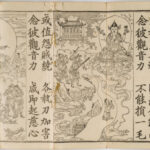 念彼觀音力
不能損一毛
或值怨賊繞
各執刀加害
念彼觀音力
咸即起慈心